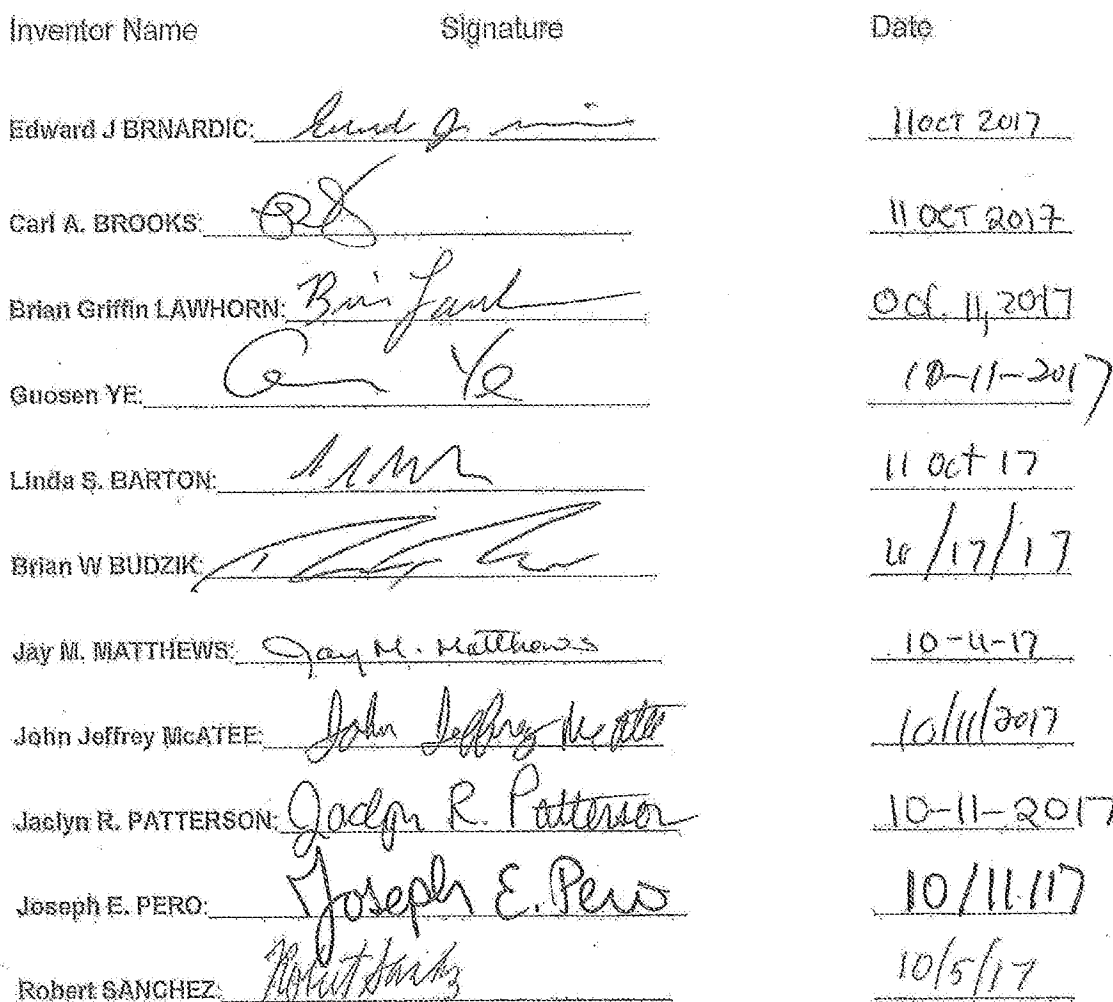 Inventor Name Signature Date
Edward J BRNARDIC: 11 OCT 2017
Carl A. BROOKS: 11 OCT 2017
Brian Griffin LAWHORN: Oct. 11, 2017
Guosen YE: Ye 10-11-2017
Linda S. BARTON: 11 Oct 17
Brian W BUDZIK: /17/17
Jay M. MATTHEWS: Jay M. Matthews 10-11-17
John Jeffrey McATEE: John Jeffrey McAtee 10/11/2017
Jaclyn R. PATTERSON: Jaclyn R. Patterson 10-11-2017
Joseph E. PERO: Joseph E. Pero 10/11/17
Robert SANCHEZ: Robert 10/5/17